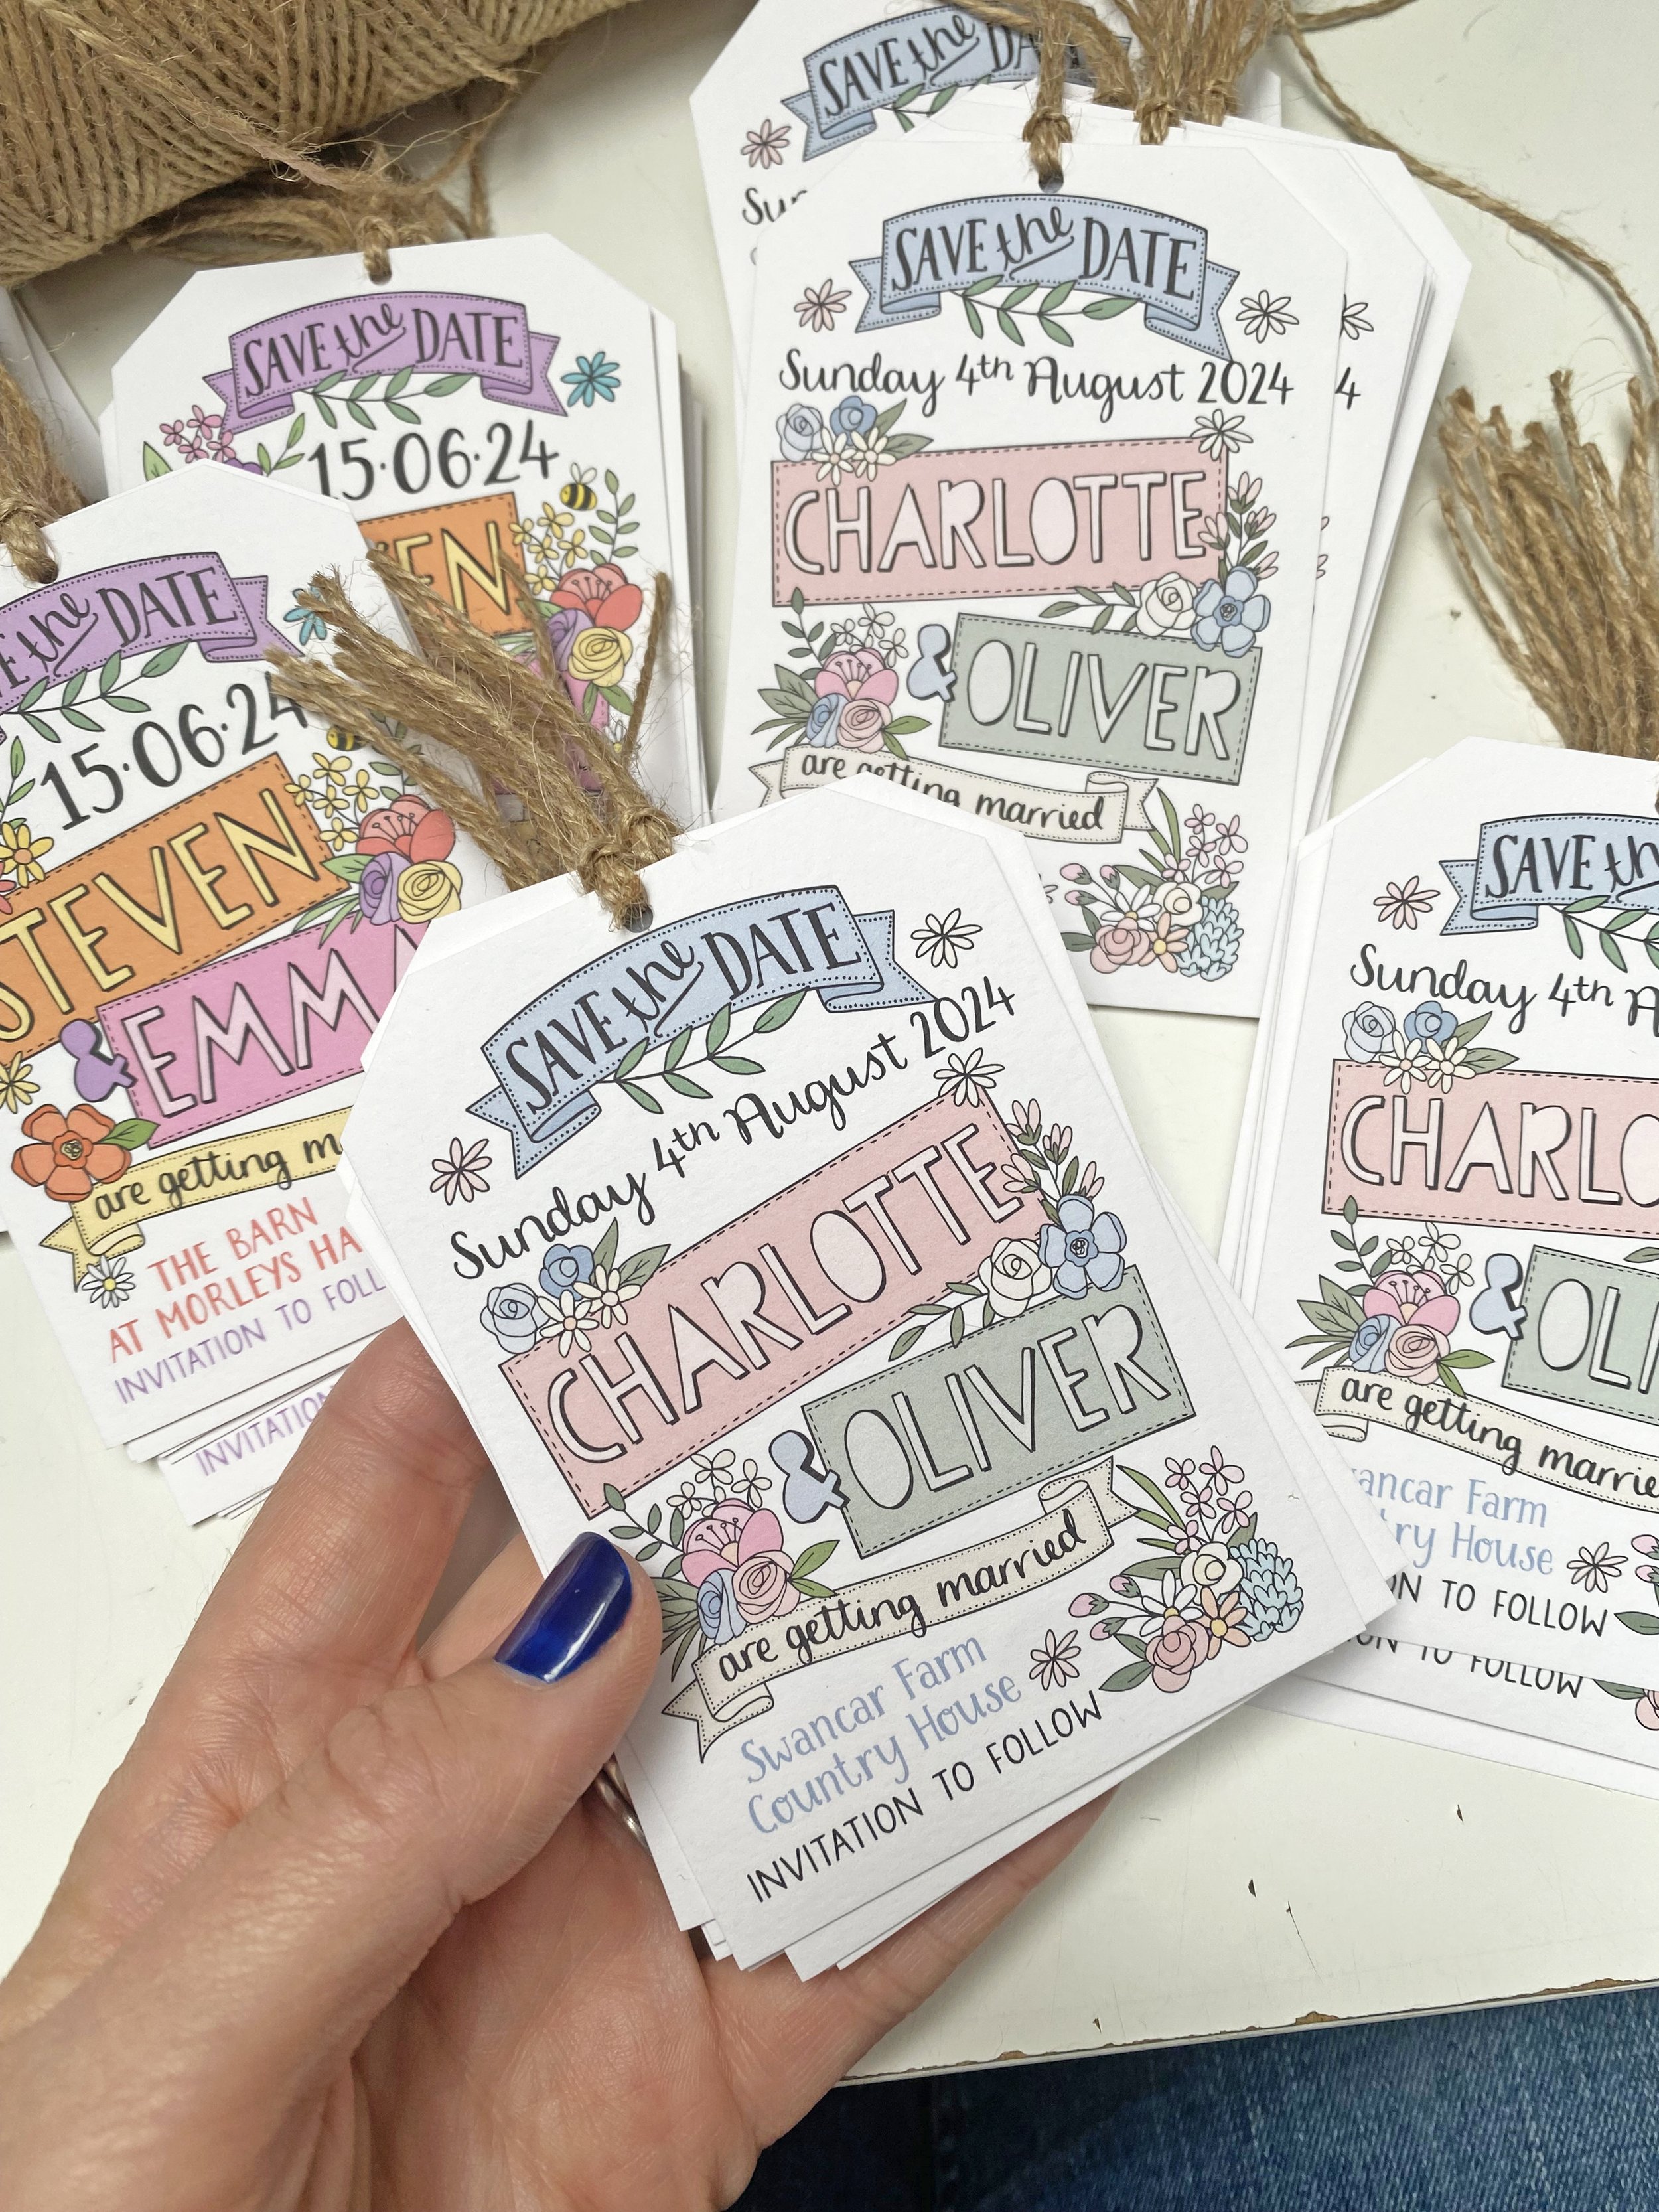 SAVE the DA
SAVE the DATE
Sunday 4th August 2024
CHARLOTTE
& OLIVER
are getting married
4
SAVE the DATE
15.06.24
EN
the DATE
15.06.24
STEVEN
& EMMA
are getting m
THE BARN
AT MORLEYS HA
INVITATION TO FOLL
INVITATION
SAVE the DATE
Sunday 4th August 2024
CHARLOTTE
& OLIVER
are getting married
Swancar Farm
Country House
INVITATION TO FOLLOW
SAVE th
Sunday 4th A
CHARLO
& OLI
are getting marrie
ancar Farm
try House
ON TO FOLLOW
ON TO FOLLOW